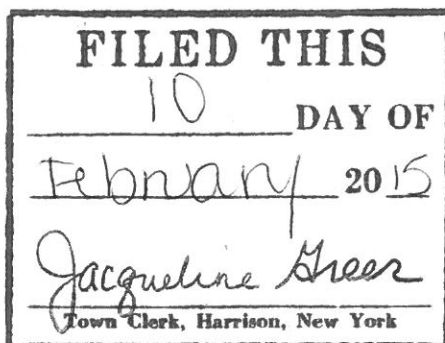 FILED THIS
10 DAY OF
February 2015
Jacqueline Greer
Town Clerk, Harrison, New York